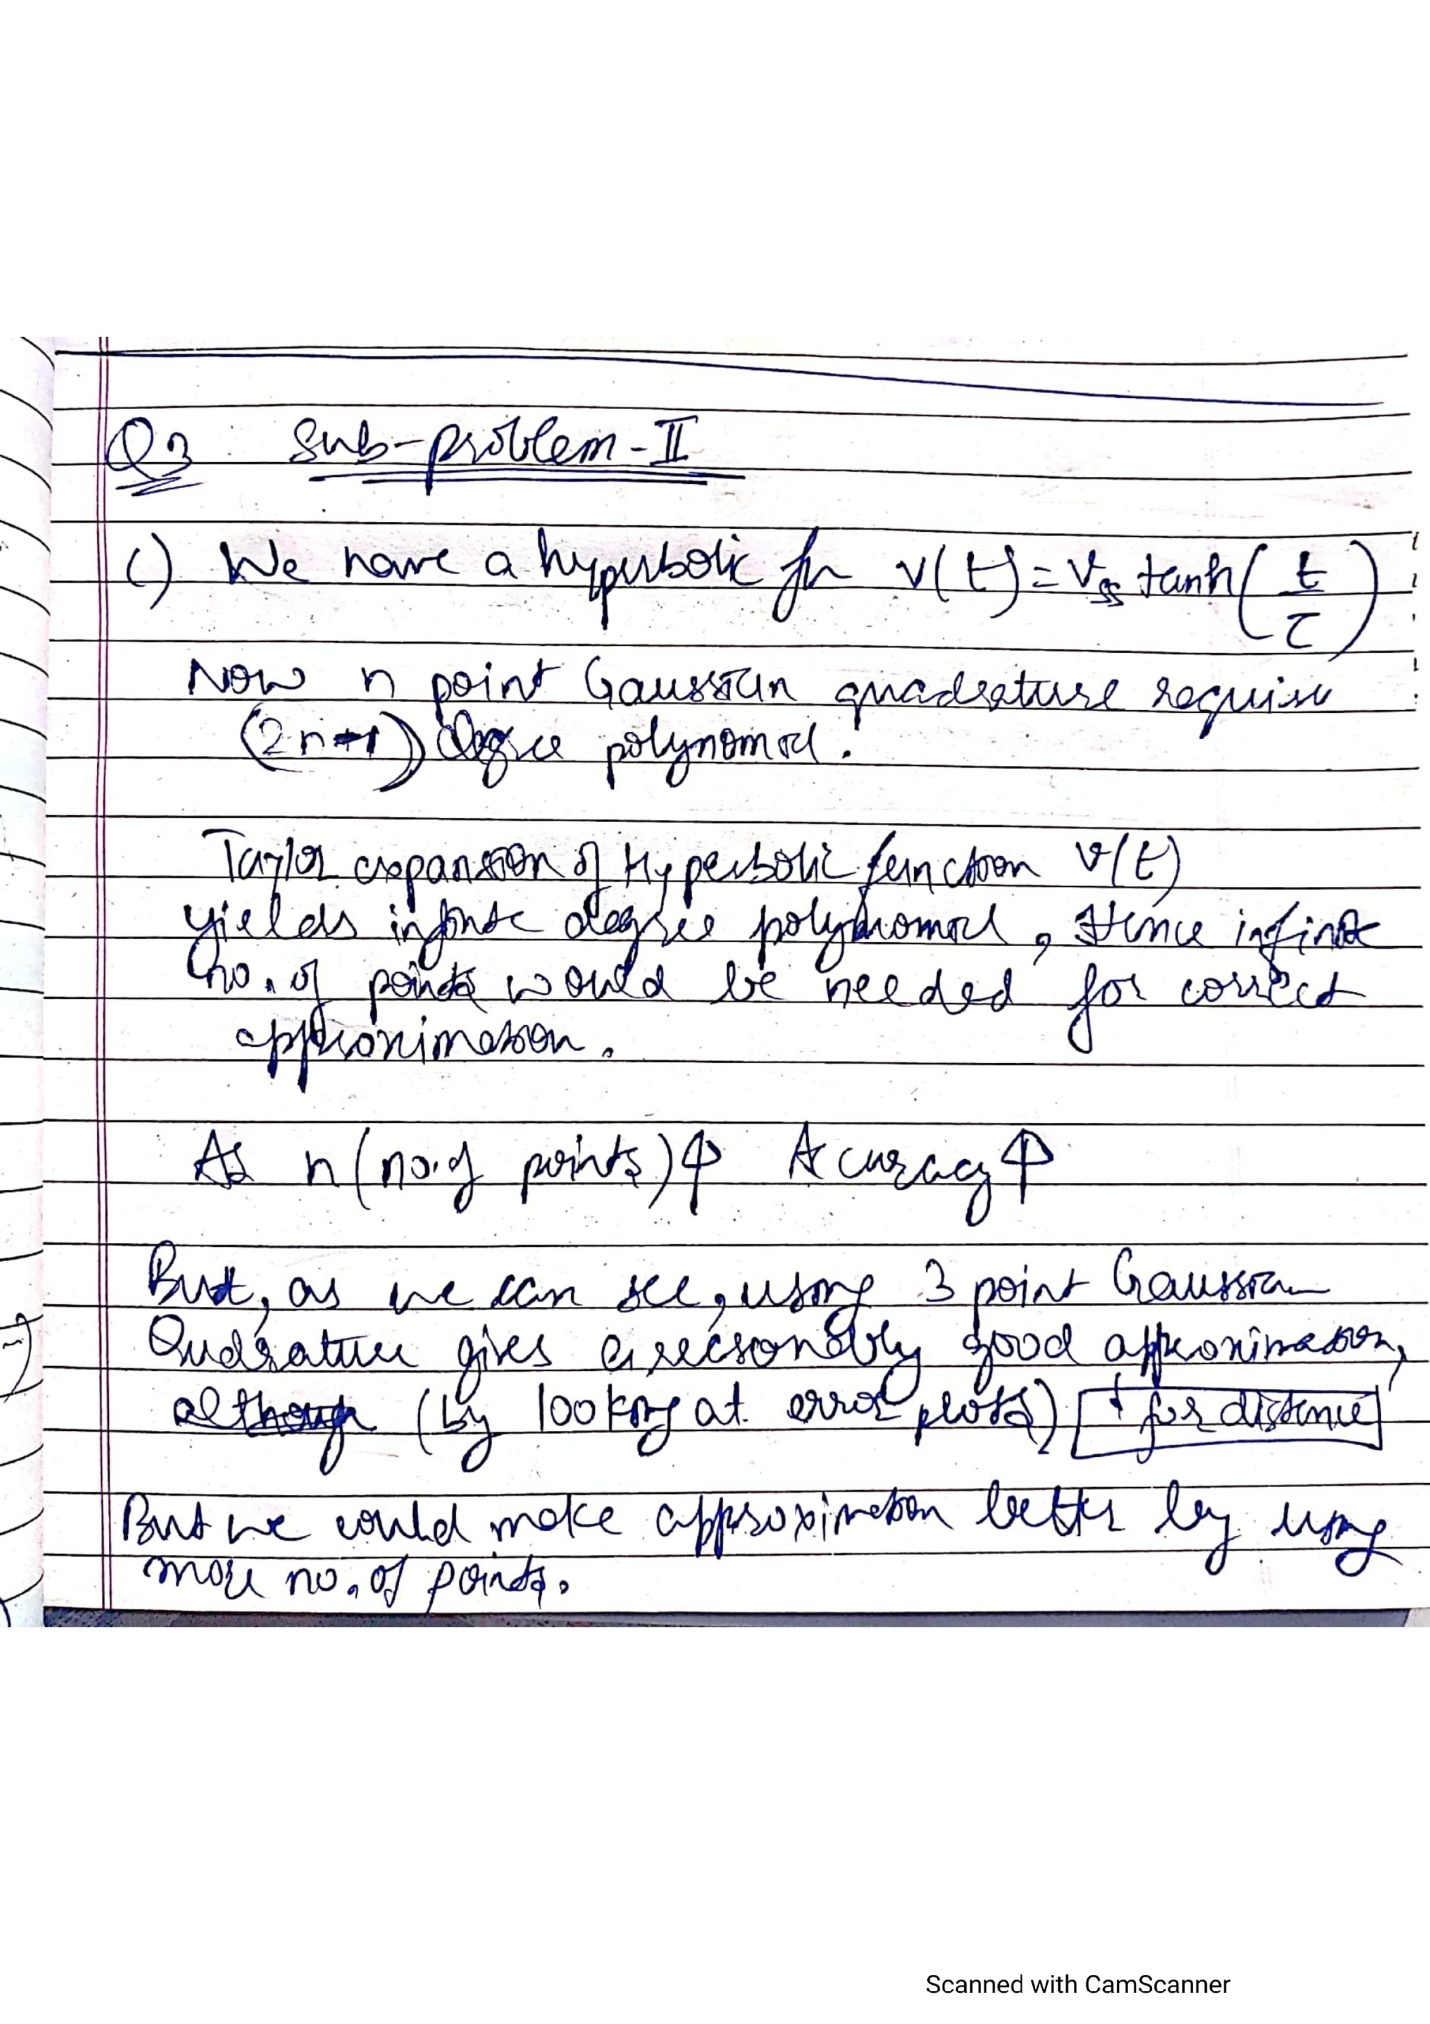 Q3 Sub-problem-II
c) We have a hyperbolic fn v(t) = Vss tanh(t/τ)
Now n point Gaussian quadrature require
(2n-1) degree polynomial.
Taylor expansion of Hyperbolic function v(t)
yields infinite degree polynomial, Hence infinite
no. of points would be needed for correct
approximation.
As n (no. of points) ↑ Accuracy ↑
But, as we can see, using 3 point Gaussian
Qudrature gives a reasonably good approximation,
(by looking at error plots) for distance
But we could make approximation better by using
more no. of points.
Scanned with CamScanner